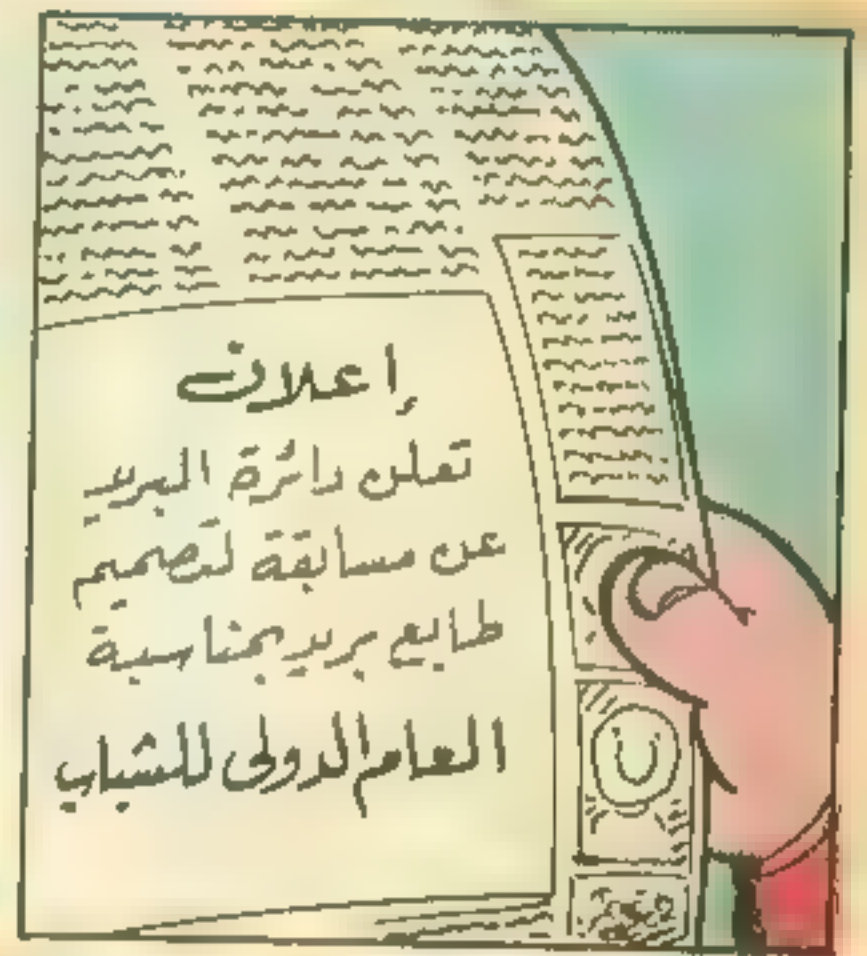 إعلان
تعلن دائرة البريد
عن مسابقة لتصميم
طابع بريد بمناسبة
العام الدولى للشباب